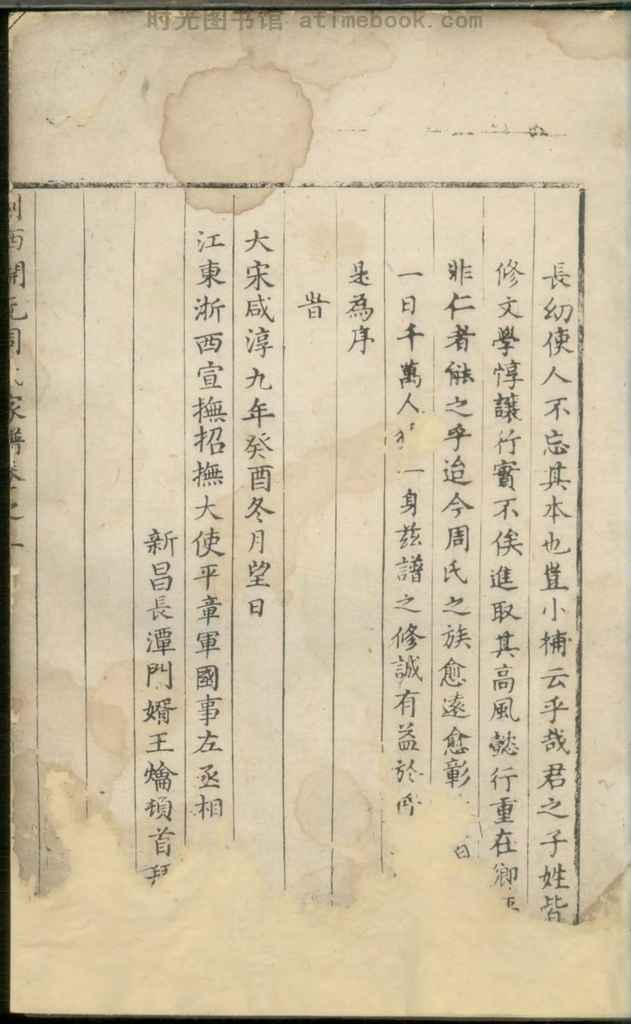 时光图书馆 atimebook.com
長幼使人不忘其本也豈小補云乎哉君之子姓皆
修文學惇讓行實不俟進取其高風懿行重在鄉
非仁者能之乎迨今周氏之族愈遠愈彰
一日千萬人 一身茲譜之修誠有益於
是為序
旹
大宋咸淳九年癸酉冬月望日
江東浙西宣撫招撫大使平章軍國事左丞相
新昌長潭門婿王爚頓首拜
西開元周氏家譜卷之一